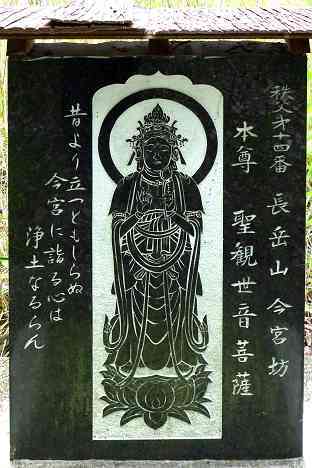 秩父才十四番 長岳山 今宮坊
本尊 聖観世音菩薩
昔より立つともしらぬ
今宮に詣る心は
浄土なるらん